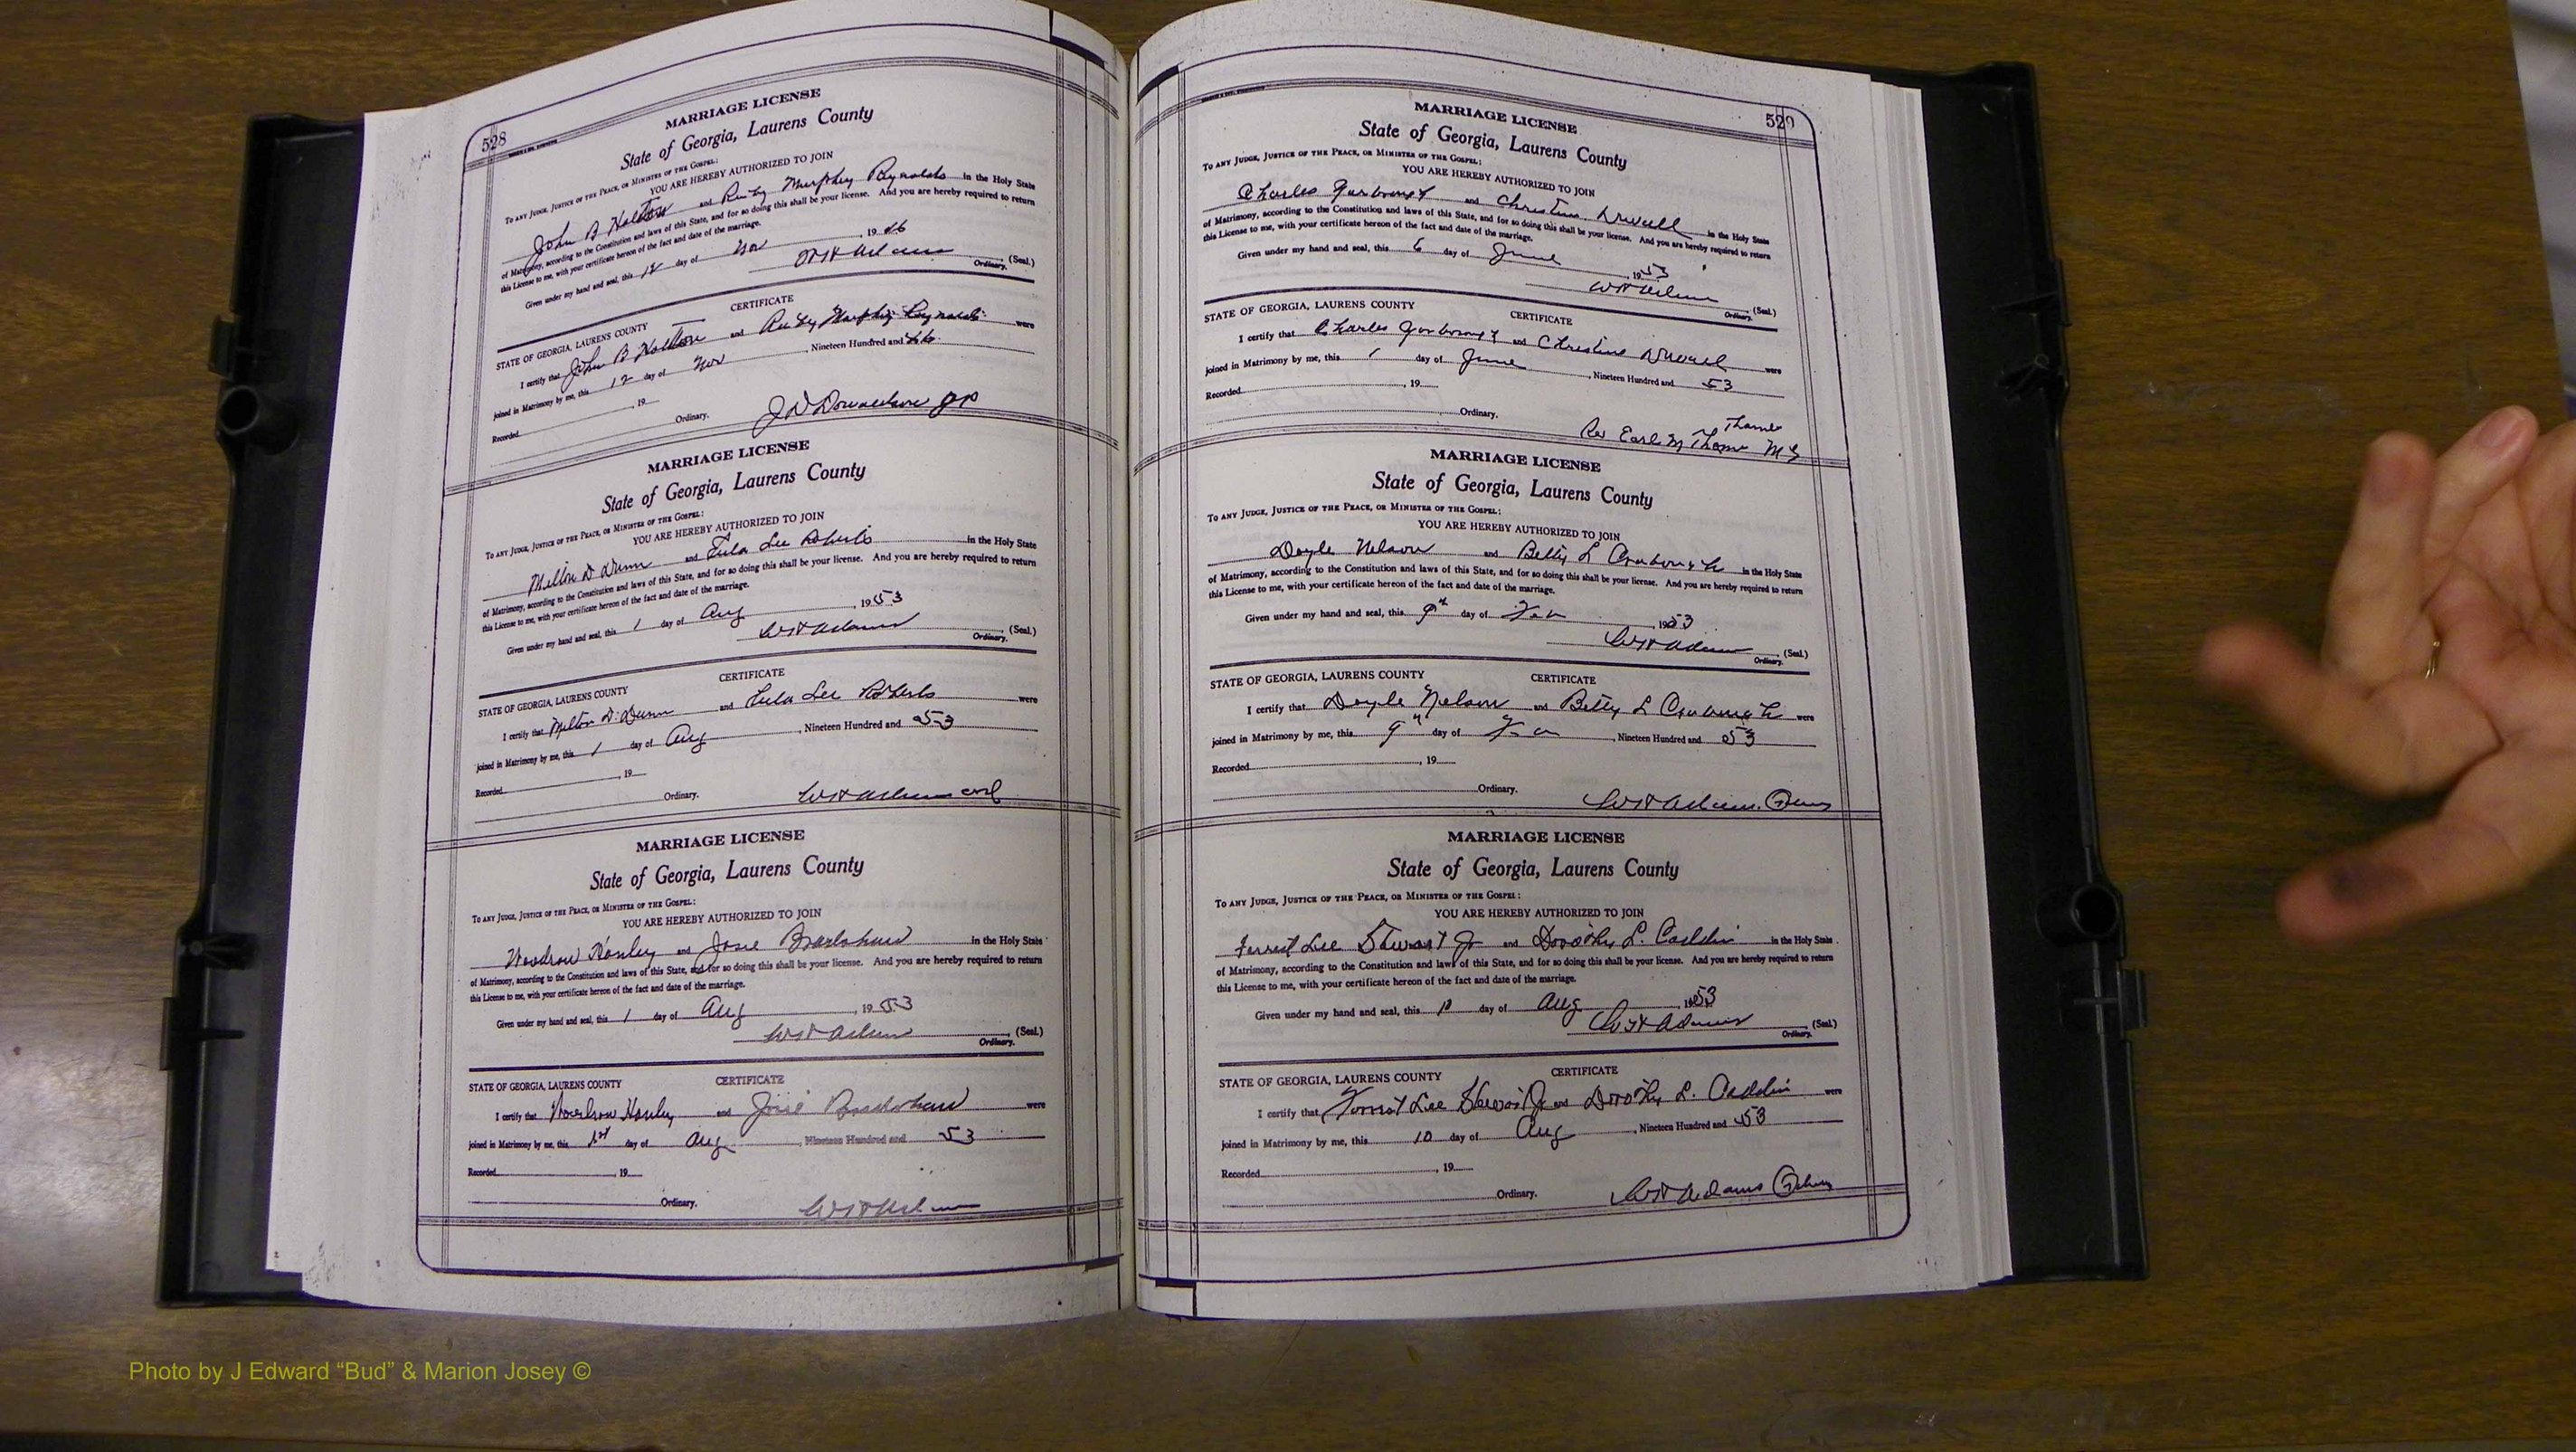 528
MARRIAGE LICENSE
State of Georgia, Laurens County
TO ANY JUDGE, JUSTICE OF THE PEACE, OR MINISTER OF THE GOSPEL:
YOU ARE HEREBY AUTHORIZED TO JOIN
John B Holton and Ruby Murphy Reynolds in the Holy State
of Matrimony, according to the Constitution and laws of this State, and for so doing this shall be your license. And you are hereby required to return
this License to me, with your certificate hereon of the fact and date of the marriage.
Given under my hand and seal, this 12 day of Nov, 19
W H Adams (Seal.)
Ordinary.
CERTIFICATE
STATE OF GEORGIA, LAURENS COUNTY
I certify that John B Holton and Ruby Murphy Reynolds were
joined in Matrimony by me, this 12 day of Nov, Nineteen Hundred and
Recorded, 19
Ordinary. J D JP
MARRIAGE LICENSE
State of Georgia, Laurens County
TO ANY JUDGE, JUSTICE OF THE PEACE, OR MINISTER OF THE GOSPEL:
YOU ARE HEREBY AUTHORIZED TO JOIN
Milton D Dunn and Eula Lee Roberts in the Holy State
of Matrimony, according to the Constitution and laws of this State, and for so doing this shall be your license. And you are hereby required to return
this License to me, with your certificate hereon of the fact and date of the marriage.
Given under my hand and seal, this 1 day of Aug, 1953
W H Adams (Seal.)
Ordinary.
CERTIFICATE
STATE OF GEORGIA, LAURENS COUNTY
I certify that Milton D. Dunn and Eula Lee Roberts were
joined in Matrimony by me, this 1 day of Aug, Nineteen Hundred and 53
Recorded, 19
Ordinary. W H Adams ord
MARRIAGE LICENSE
State of Georgia, Laurens County
TO ANY JUDGE, JUSTICE OF THE PEACE, OR MINISTER OF THE GOSPEL:
YOU ARE HEREBY AUTHORIZED TO JOIN
Woodrow Hanley and Josie Bradshaw in the Holy State
of Matrimony, according to the Constitution and laws of this State, and for so doing this shall be your license. And you are hereby required to return
this License to me, with your certificate hereon of the fact and date of the marriage.
Given under my hand and seal, this 1 day of Aug, 1953
W H Adams (Seal.)
Ordinary.
CERTIFICATE
STATE OF GEORGIA, LAURENS COUNTY
I certify that Woodrow Hanley and Josie Bradshaw were
joined in Matrimony by me, this 1st day of Aug, Nineteen Hundred and 53
Recorded, 19
Ordinary. W H Adams
529
MARRIAGE LICENSE
State of Georgia, Laurens County
TO ANY JUDGE, JUSTICE OF THE PEACE, OR MINISTER OF THE GOSPEL:
YOU ARE HEREBY AUTHORIZED TO JOIN
Charles and Christine in the Holy State
of Matrimony, according to the Constitution and laws of this State, and for so doing this shall be your license. And you are hereby required to return
this License to me, with your certificate hereon of the fact and date of the marriage.
Given under my hand and seal, this 6 day of June, 1953
W H Adams (Seal.)
Ordinary.
CERTIFICATE
STATE OF GEORGIA, LAURENS COUNTY
I certify that Charles and Christine were
joined in Matrimony by me, this day of June, Nineteen Hundred and 53
Recorded, 19
Ordinary.
Rev Earl M M G
MARRIAGE LICENSE
State of Georgia, Laurens County
TO ANY JUDGE, JUSTICE OF THE PEACE, OR MINISTER OF THE GOSPEL:
YOU ARE HEREBY AUTHORIZED TO JOIN
Doyle Nelson and Betty L in the Holy State
of Matrimony, according to the Constitution and laws of this State, and for so doing this shall be your license. And you are hereby required to return
this License to me, with your certificate hereon of the fact and date of the marriage.
Given under my hand and seal, this 9th day of, 1953
W H Adams (Seal.)
Ordinary.
CERTIFICATE
STATE OF GEORGIA, LAURENS COUNTY
I certify that Doyle Nelson and Betty L were
joined in Matrimony by me, this 9" day of, Nineteen Hundred and 53
Recorded, 19
Ordinary. W H Adams.
MARRIAGE LICENSE
State of Georgia, Laurens County
TO ANY JUDGE, JUSTICE OF THE PEACE, OR MINISTER OF THE GOSPEL:
YOU ARE HEREBY AUTHORIZED TO JOIN
Forrest Lee Stewart Jr and Dorothy L. in the Holy State
of Matrimony, according to the Constitution and laws of this State, and for so doing this shall be your license. And you are hereby required to return
this License to me, with your certificate hereon of the fact and date of the marriage.
Given under my hand and seal, this 10 day of Aug, 1953
W H Adams (Seal.)
Ordinary.
CERTIFICATE
STATE OF GEORGIA, LAURENS COUNTY
I certify that Forrest Lee Stewart Jr and Dorothy L. were
joined in Matrimony by me, this 10 day of Aug, Nineteen Hundred and 53
Recorded, 19
Ordinary. W H Adams
Photo by J Edward “Bud” & Marion Josey ©